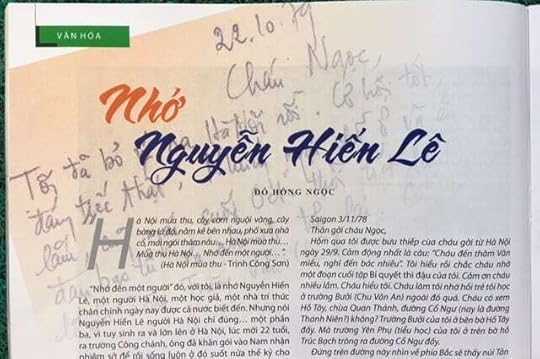 VĂN HÓA
22.10.79
Cháu Ngọc,
Nhớ
Nguyễn Hiến Lê
Tôi đã bỏ
ĐỖ HỒNG NGỌC
"Hà Nội mùa thu, cây cơm nguội vàng, cây
bàng lá đỏ, nằm kề bên nhau, phố xưa nhà
cổ, mái ngói thâm nâu... Hà Nội mùa thu...
Mùa thu Hà Nội... Nhớ đến một người..."
(Hà Nội mùa thu - Trịnh Công Sơn)
"Nhớ đến một người" đó, với tôi, là nhớ Nguyễn Hiến
Lê, một người Hà Nội, một học giả, một nhà trí thức
chân chính ngày nay được cả nước biết đến. Nhưng nói
Nguyễn Hiến Lê người Hà Nội chỉ đúng... một phần
ba, vì tuy sinh ra và lớn lên ở Hà Nội, lúc mới 22 tuổi,
ra trường Công chánh, ông đã khăn gói vào Nam nhận
nhiệm sở để rồi sống luôn ở đó suốt nửa thế kỷ cho
Saigon 3/11/78
Thân gởi cháu Ngọc,
Hôm qua tôi được bưu thiếp của cháu gởi từ Hà Nội
ngày 29/9. Cảm động nhất là câu: "Cháu đến thăm Văn
miếu, nghĩ đến bác nhiều". Tôi hiểu rồi chắc cháu nhớ
một đoạn cuối tập Bí quyết thi đậu của tôi. Cảm ơn cháu
nhiều lắm. Cháu hiểu tôi. Cháu làm tôi nhớ hồi trẻ tôi học
ở trường Bưởi (Chu Văn An) ngoài đó quá. Cháu có xem
Hồ Tây, chùa Quan Thánh, đường Cổ Ngư (nay là đường
Thanh Niên?) không? Trường Bưởi của tôi ở bên bờ Hồ Tây
đấy. Mà trường Yên Phụ (tiểu học) của tôi ở trên bờ hồ
Trúc Bạch trông ra đường Cổ Ngư đấy.
Đứng trên đường này nhìn về phía Bắc sẽ thấy núi Tản